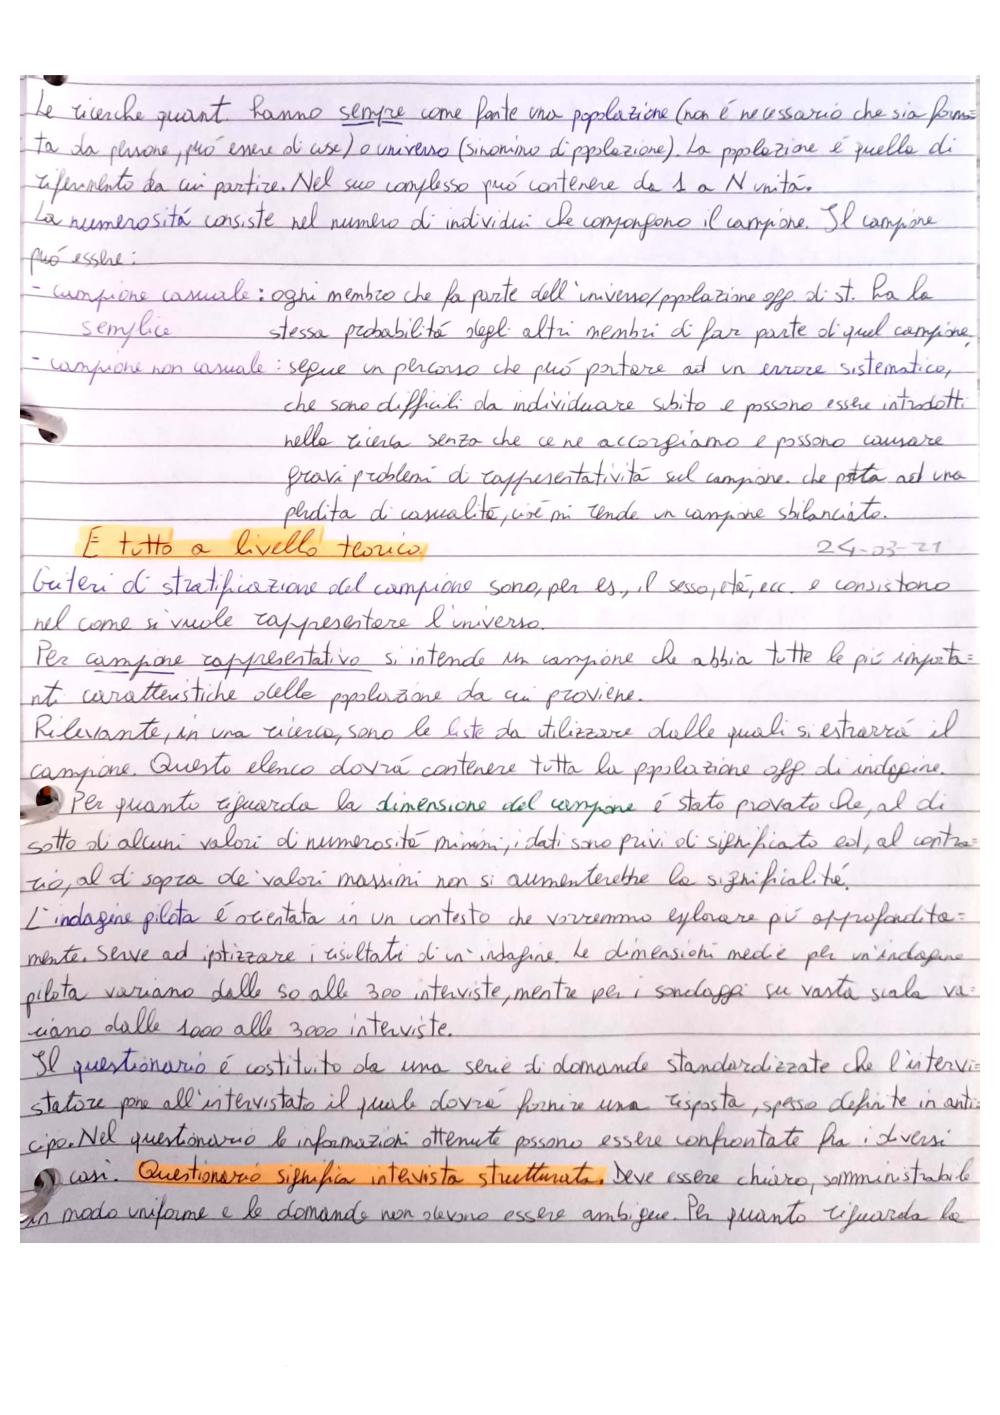 Le ricerche quant. hanno sempre come fonte una popolazione (non é necessario che sia forma=
ta da persone, puó essere di cose) o universo (sinonimo di popolazione). La popolazione é quella di
riferimento da cui partire. Nel suo complesso puó contenere da 1 a N unitá.
La numerositá consiste nel numero di individui che compongono il campione. Il campione
puó essere:
- campione casuale: ogni membro che fa parte dell'universo/popolazione ogg. di st. ha la
semplice stessa probabilitá degli altri membri di far parte di quel campione.
- campione non casuale: segue un percorso che puó portare ad un errore sistematico,
che sono difficili da individuare subito e possono essere introdotti
nella ricerca senza che ce ne accorgiamo e possono causare
gravi problemi di rappresentativitá sul campione. che porta ad una
perdita di casualitá, cioé mi rende un campione sbilanciato.
É tutto a livello teorico. 24-03-21
Criteri di stratificazione del campione sono, per es., il sesso, etá, ecc. e consistono
nel come si vuole rappresentare l'universo.
Per campione rappresentativo si intende un campione che abbia tutte le piú importa=
nti caratteristiche della popolazione da cui proviene.
Rilevante, in una ricerca, sono le liste da utilizzare dalle quali si estrarrá il
campione. Questo elenco dovrá contenere tutta la popolazione ogg. di indagine.
Per quanto riguarda la dimensione del campione é stato provato che, al di
sotto di alcuni valori di numerositá minimi, i dati sono privi di significato ed, al contra=
rio, al di sopra de' valori massimi non si aumenterebbe la significalitá.
L'indagine pilota é orientata in un contesto che vorremmo esplorare piú approfondita=
mente. Serve ad ipotizzare i risultati di un'indagine. Le dimensioni medie per un'indagine
pilota variano dalle 50 alle 300 interviste, mentre per i sondaggi su vasta scala va=
riano dalle 1000 alle 3000 interviste.
Il questionario é costituito da una serie di domande standardizzate che l'intervi=
statore pone all'intervistato il quale dovrá fornire una risposta, spesso definite in anti=
cipo. Nel questionario le informazioni ottenute possono essere confrontate fra i diversi
casi. Questionario significa intervista strutturata. Deve essere chiaro, somministrabile
in modo uniforme e le domande non devono essere ambigue. Per quanto riguarda la